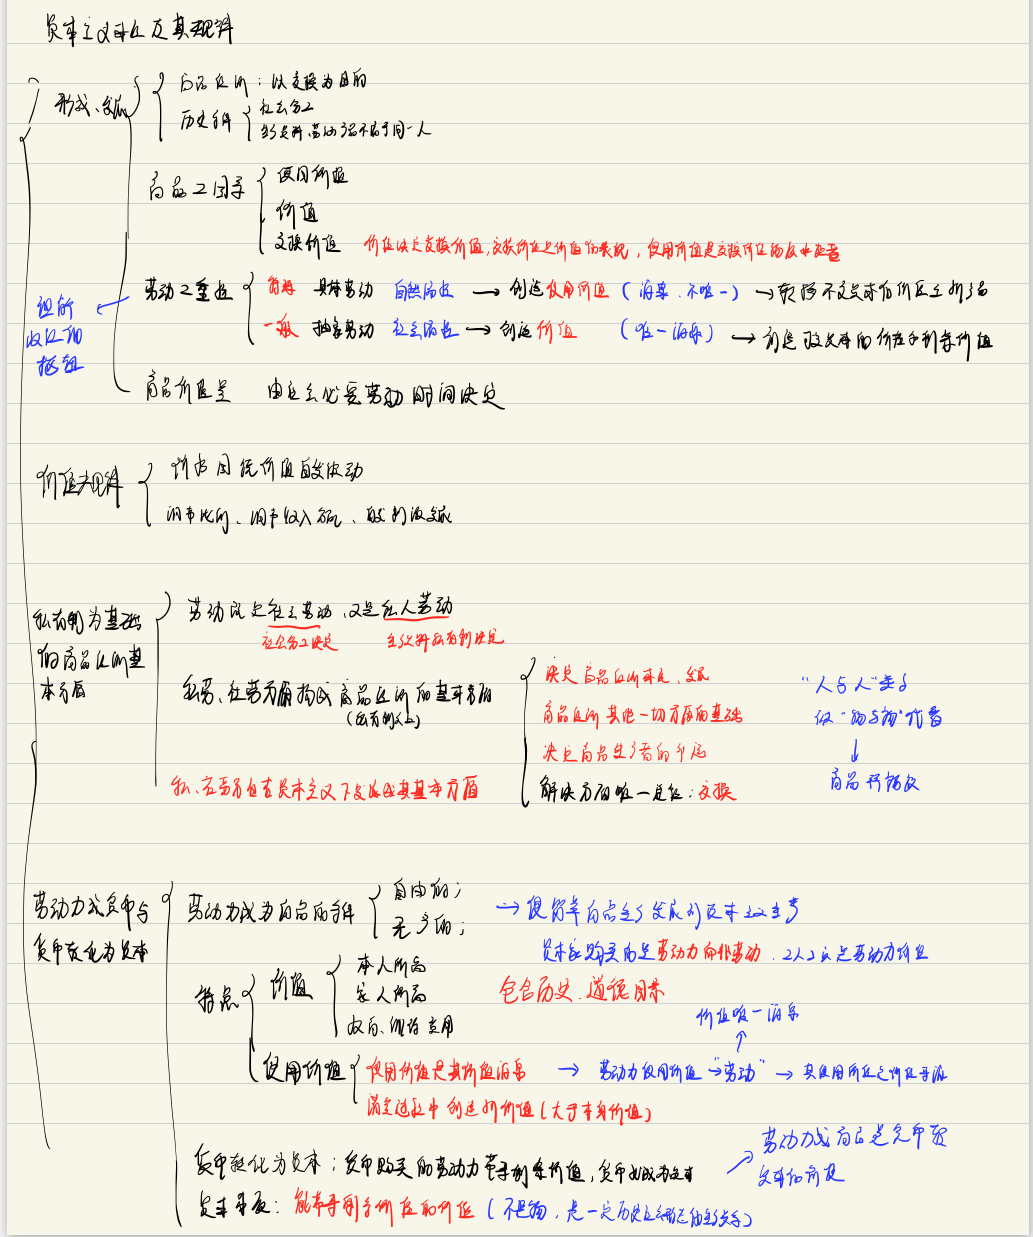 资本主义本质及其规律
形成、发展
商品经济：以交换为目的
历史条件
社会分工
生产资料、劳动产品不属于同一人
商品二因素
使用价值
价值
交换价值 价值决定交换价值，交换价值是价值的表现，使用价值是交换价值的物质承担者
劳动二重性
具体劳动 自然属性 → 创造使用价值（源泉、不唯一）→ 转移不变资本的价值至新产品
一般 抽象劳动 社会属性 → 创造 价值 （唯一源泉）→ 创造可变资本的价值和剩余价值
商品价值量 由社会必要劳动时间决定
价值规律
价格围绕价值自发波动
调节比例、调节收入分配、自发刺激发展
私有制为基础
的商品经济基
本矛盾
劳动既是社会劳动，又是私人劳动
社会分工决定 生产资料私有制决定
私劳、社劳矛盾构成商品经济的基本矛盾
（私有制以上）
决定商品经济本质、发展
商品经济其他一切矛盾的基础
决定商品生产者的命运
解决矛盾唯一途径：交换
私、社劳矛盾在资本主义下发展成其基本矛盾
“人与人”关系
被“物与物”代替
↓
商品拜物教
劳动力成商品与
货币转化为资本
劳动力成为商品的条件
自由的；
无产的；
→ 使简单商品生产发展到资本主义生产
资本家购买的是劳动力而非劳动，工人工资是劳动力价值
特点
价值
本人所需
家人所需
教育、训练费用
包含历史、道德因素
价值唯一源泉
↑
使用价值
使用价值是其价值源泉 → 劳动力使用价值→“劳动” → 其使用价值是价值来源
消费过程中创造新价值（大于本身价值）
货币转化为资本：货币购买的劳动力带来剩余价值，货币也成为资本
劳动力成商品是货币转
资本的前提
资本本质：能带来剩余价值的价值（不是物，是一定历史社会形态的生产关系）